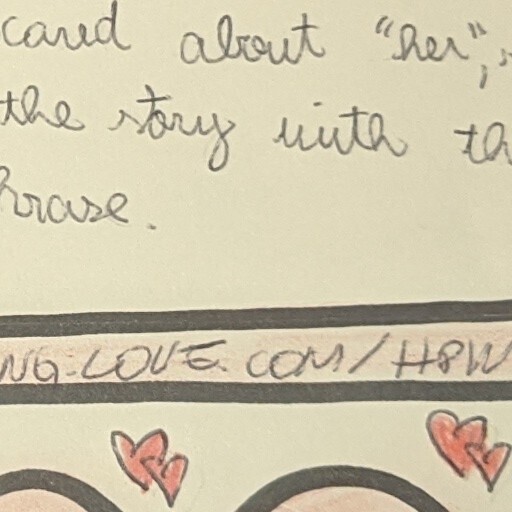 card about "her",
the story with th
hrase.
NG-LOVE.COM/H8W